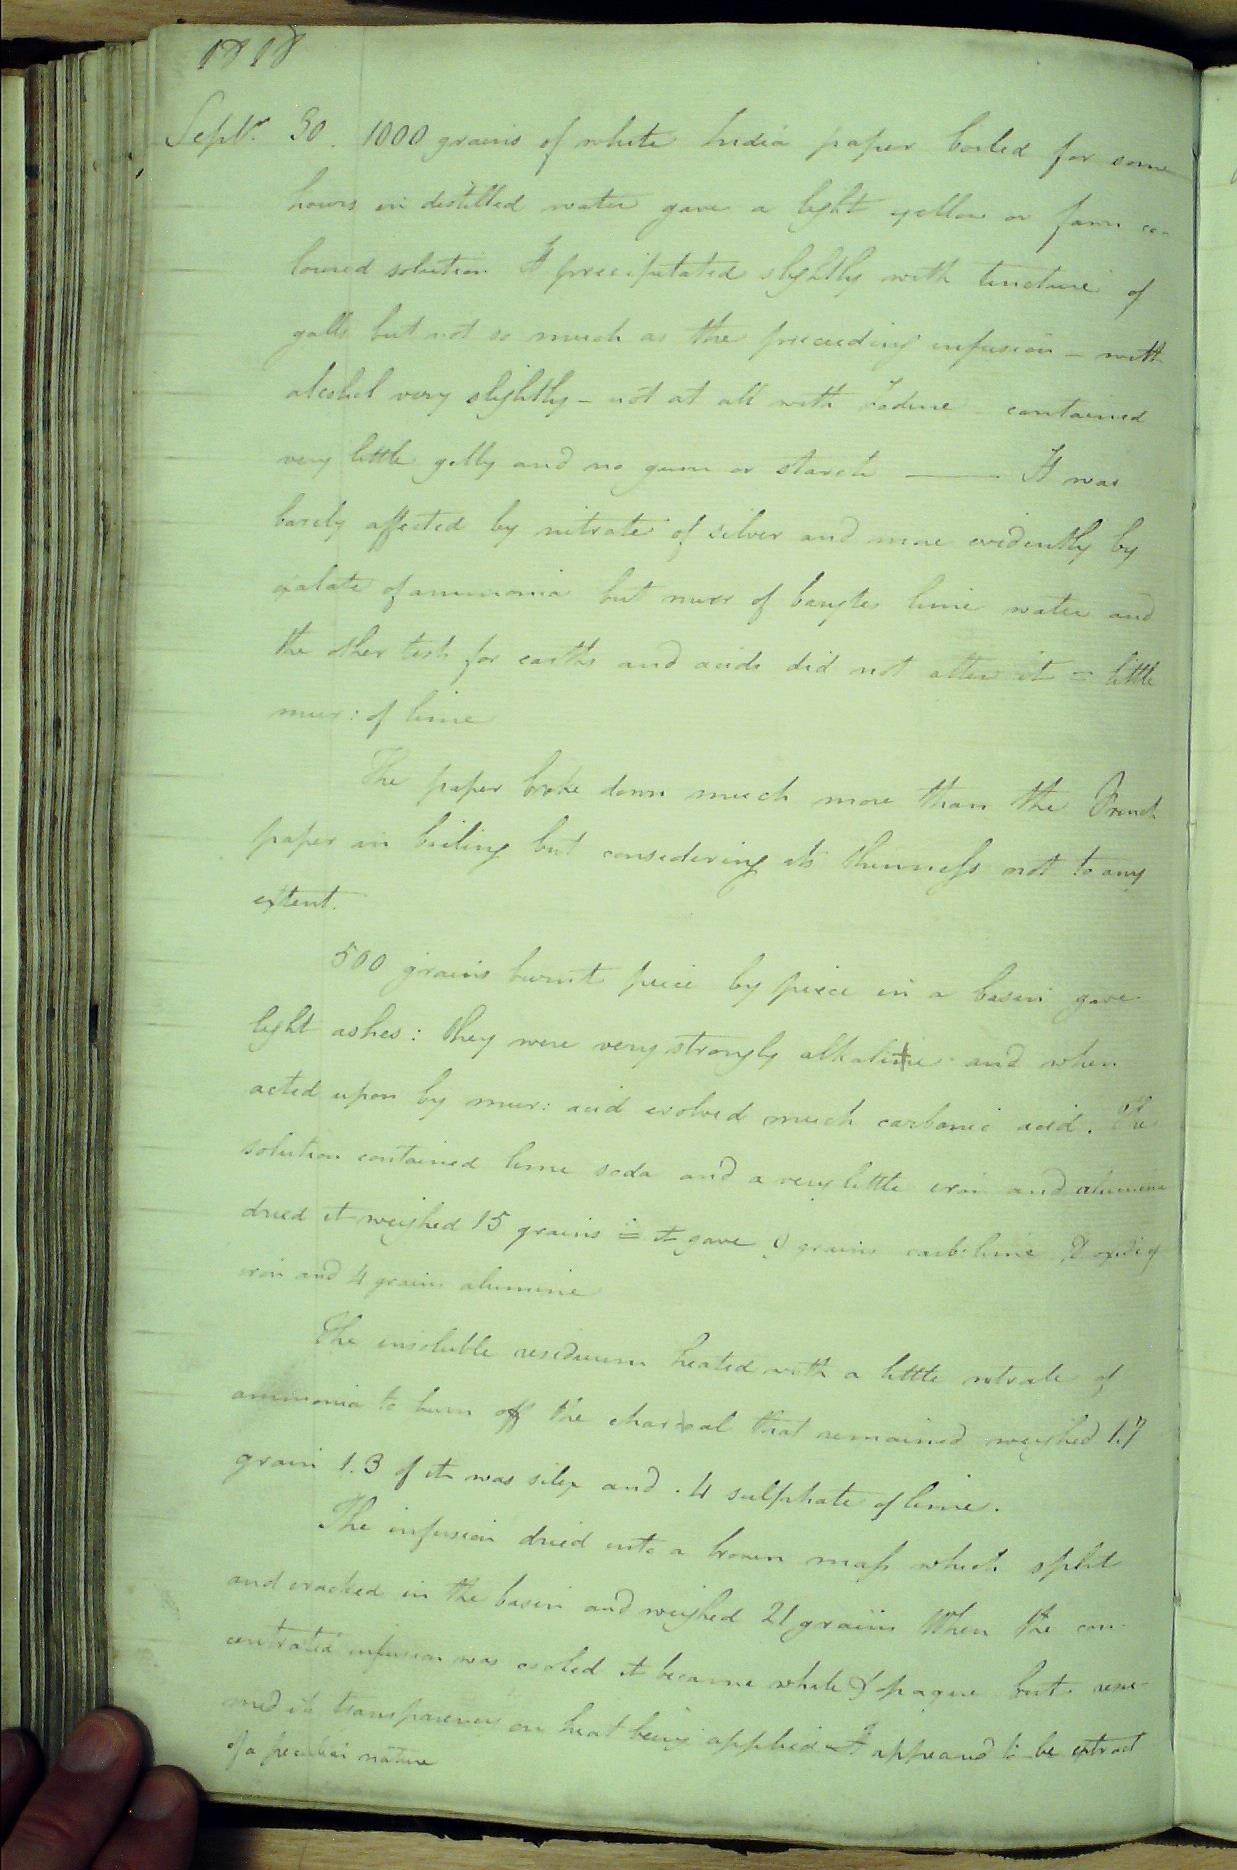 1818
Septr. 30. 1000 grains of white India paper boiled for some
hours in distilled water gave a light yellow or fawn co-
loured solution. It precipitated slightly with tincture of
galls but not so much as the preceeding infusion – with
alcohol very slightly – not at all with Iodine – contained
very little gelly and no gum or starch —— It was
barely affected by nitrate of silver and more evidently by
oxalate of ammonia but mur of barytes lime water and
the other tests for earths and acids did not alter it = little
mur: of lime
The paper broke down much more than the French
paper in boiling but considering its thinness not to any
extent.
500 grains burnt peice by peice in a basin gave
light ashes: they were very strongly alkaline and when
acted upon by mur: acid evolved much carbonic acid. The
solution contained lime soda and a very little iron and alumine
dried it weighed 15 grains = it gave 9 grains carb: lime, 2 oxide of
iron and 4 grains alumine
The insoluble residuum heated with a little nitrate of
ammonia to burn off the charcoal that remained weighed 1.7
grain 1.3 of it was silex and .4 sulphate of lime.
The infusion dried into a brown mass which split
and cracked in the basin and weighed 21 grains When the con-
centrated infusion was cooled it became white & opaque but resu-
med its transparency on heat being applied It appeared to be extract
of a peculiar nature